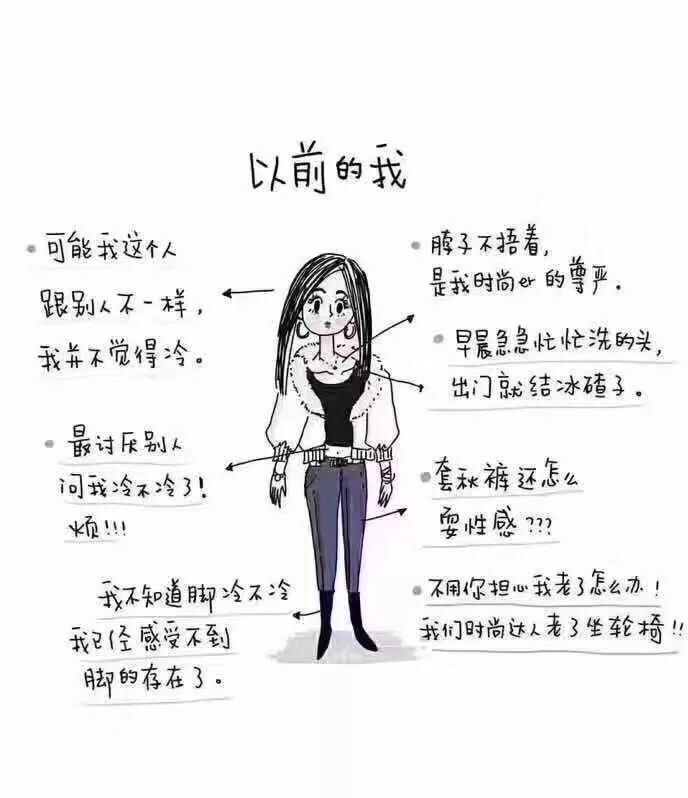 以前的我
可能我这个人
跟别人不一样，
我并不觉得冷。
最讨厌别人
问我冷不冷了！
烦!!!
我不知道脚冷不冷
我已经感受不到
脚的存在了。
脖子不捂着，
是我时尚er的尊严．
早晨急急忙忙洗的头，
出门就结冰碴子。
套秋裤还怎么
耍性感???
不用你担心我老了怎么办！
我们时尚达人老了坐轮椅!!